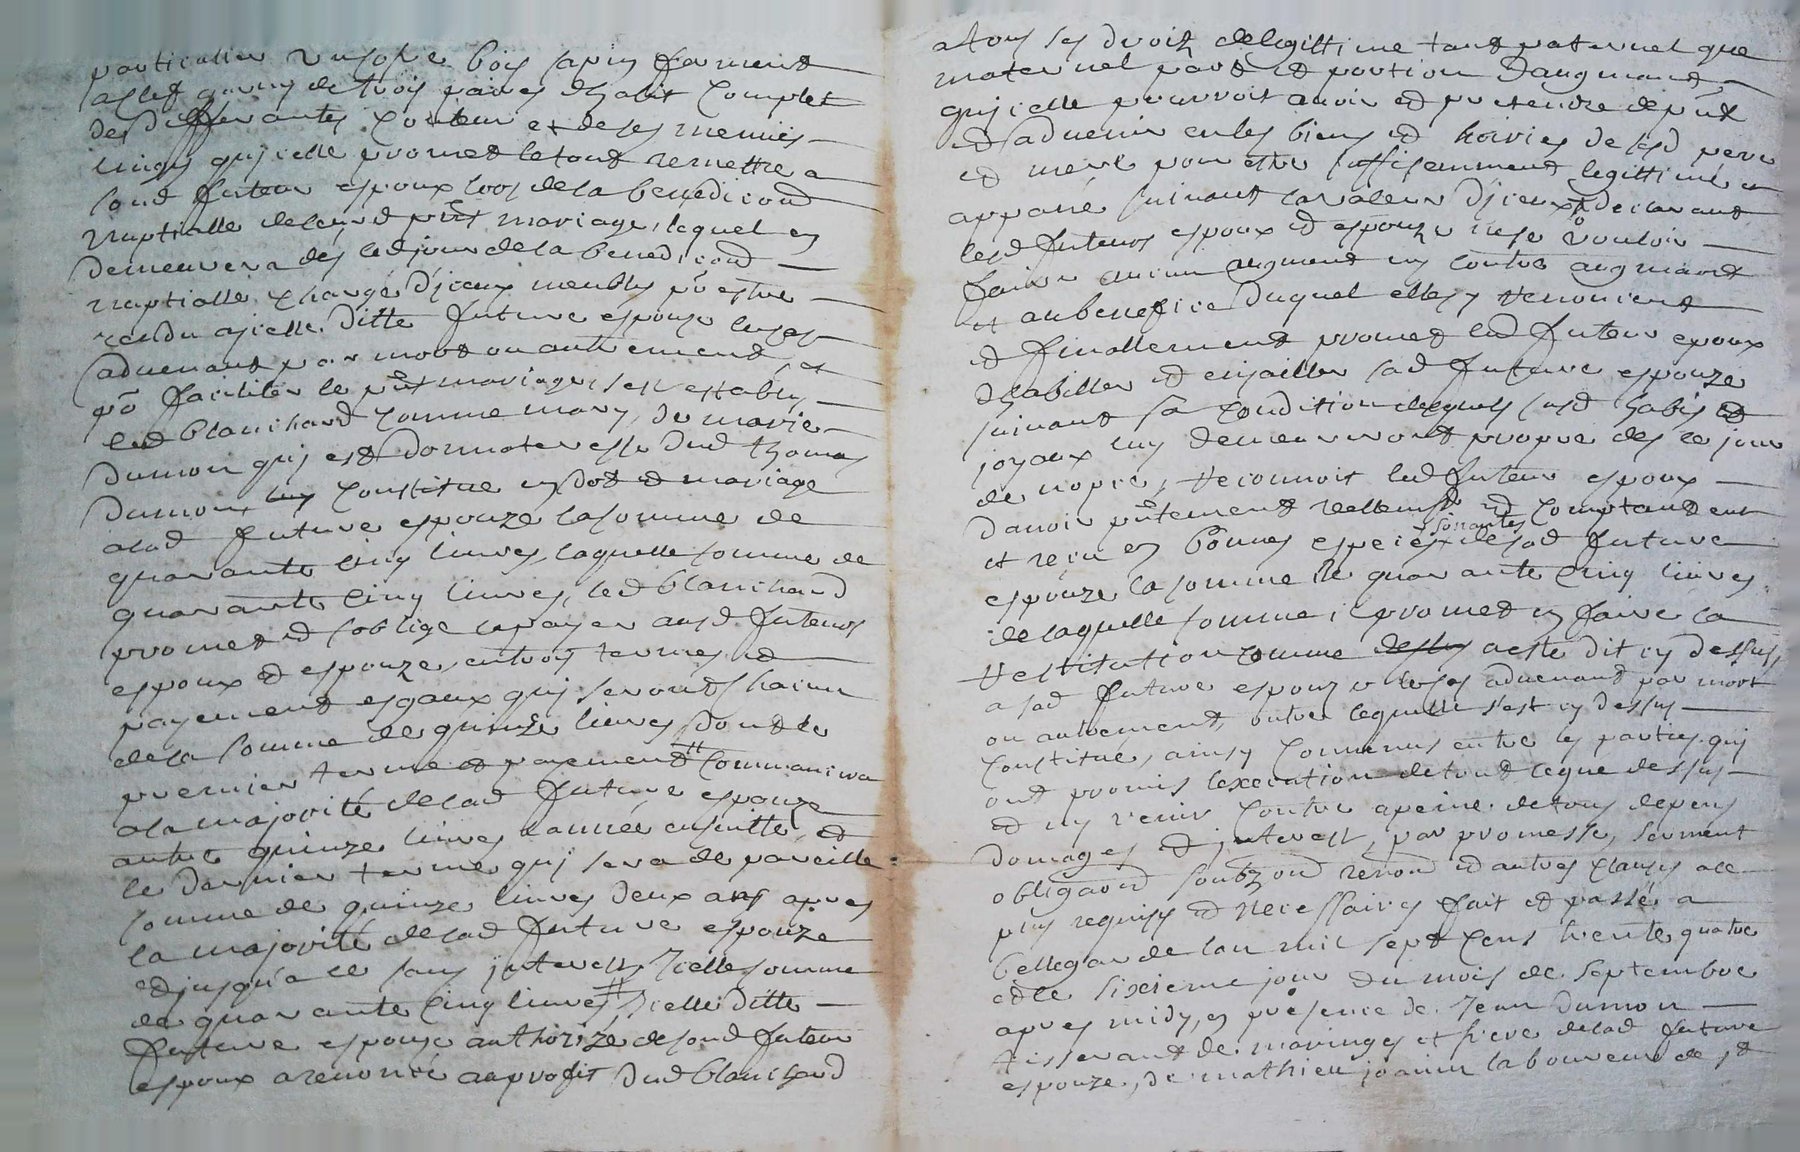 particulier rusche bois sapin fermant
a clef garny de trois paires d'habit complet
de differantes couleur et de ses menus
linges qu'icelle promet le tout remettre a
sond futeur espoux lors de la benediond
nuptialle de leurd pnt mariage, lequel en
demeurera des led jour de la benediond
nuptialle chargé d'jceux meubles pr estre
rendu a jcelle ditte future espouze le cas
advenant par mort ou autrement, et
po faciliter le pnt mariage s'est establÿ
led blanchard comme mary de marie
dumon qui est dormateresse dud thomas
dumon, luy constitue en dot et mariage
a lad future espouze la somme de
quarante cinq livres, laquelle somme de
quarante cinq livres, led blanchard
promet et s'oblige la payer ausd futeurs
espoux et espouze, en trois termes et
payement esgaux qui seront chacun
de la somme de quinze livres dont le
premier terme et payement commancera
a la majorité de lad future espouze
autre quinze livres l'année ensuitte, et
le dernier terme qui sera de pareille
somme de quinze livres deux ans apres
la majorité de lad future espouze
et jusqu'a ce sans jnterest, jcelle somme
de quarante cinq livres, jcelle ditte
future espouze authorizé de sond futeur
espoux a renoncé au profit dud blanchard
a tous ses droitz de legittime tant paternel que
maternel part et portion d'augmant,
qu'jcelle pourroit avoir et pretendre de pnt
et advenir en les biens et hoiries de sesd pere
et mere pour estre suffisemment legittimé et
appané suivant la valeur d'jceux declarant
lesd futeurs espoux et espouze ne se vouloir
faire aucun augment ny contre augmant
et au benefice duquel elles y renoncent
et finallement promet led futeur epoux
d'habiller et enjailler sad future espouze
suivant sa condition lesquels susd habis et
joyaux luy demeurront propre des le jour
de nopce, reconnoit led futeur espoux
d'avoir pntement reellemt et comptant eut
et reçu en bonnes especes sonantes de sad future
espouze la somme de quarante cinq livres
de laquelle somme, il promet en faire la
restitution comme acste dit cy dessus,
a sad future espouze le cas advenant par mort
ou autrement, outre laquelle s'est cy dessus
constitué, ainsy convenus entre les parties qui
ont promis l'execution de tout ce que dessus
et n'y venir contre a peine de tous depens
domages et jnterest, par promesse, serment
obligaond soubzond renond et autres clauses a ce
plus requises et necessaires fait et passé a
bellegarde l'an mil sept cens trente quatre
et le sixieme jour du mois de septembre
apres midy, en presence de Jean dumon
tisserant de maringes et frere de lad future
espouze, de mathieu joanin laboureur de st